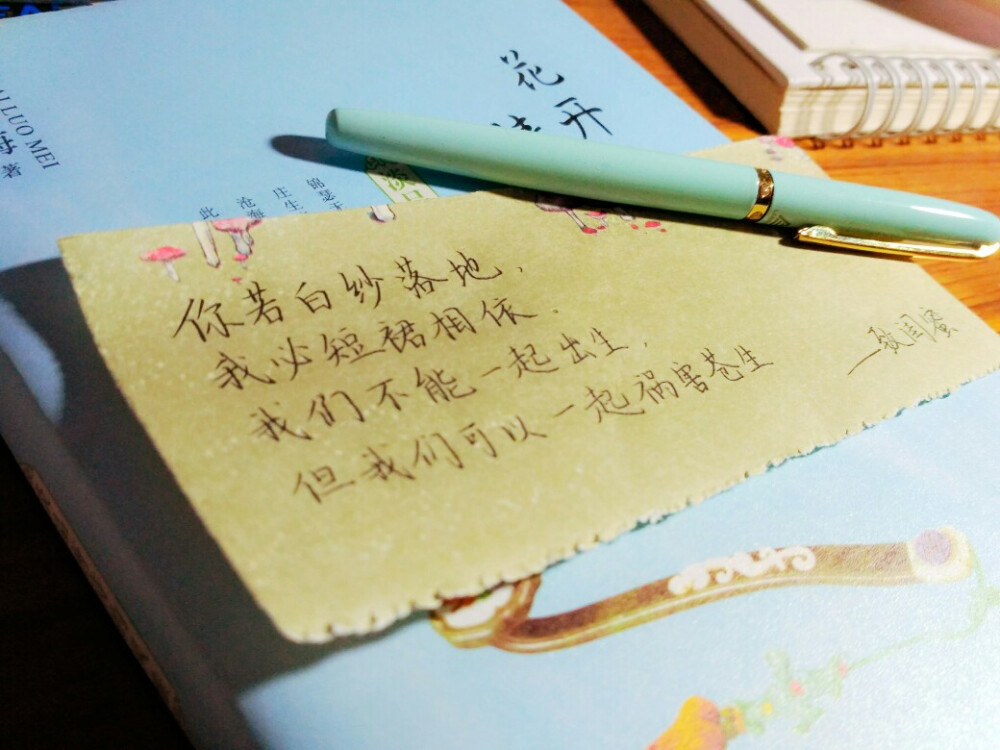 花开
LUO MEI
著
锦瑟
庄生
沧海
此
你若白纱落地，
我必短裙相依．
我们不能一起出生，
但我们可以一起祸害苍生
—致闺蜜